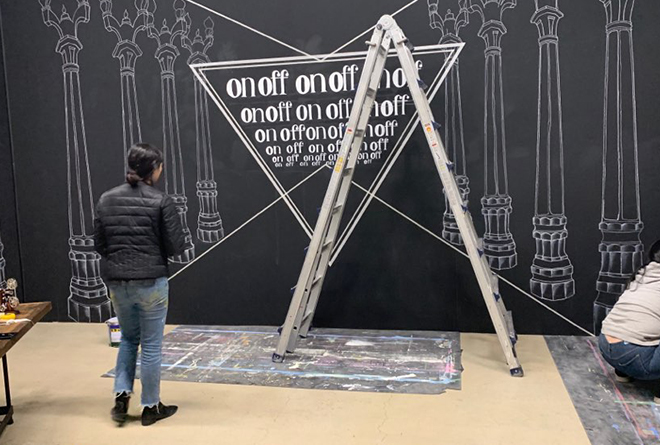 on off on off on off
on off on off on off
on off on off on off
on off on off on off
on off on off on off on off
on off on off on off